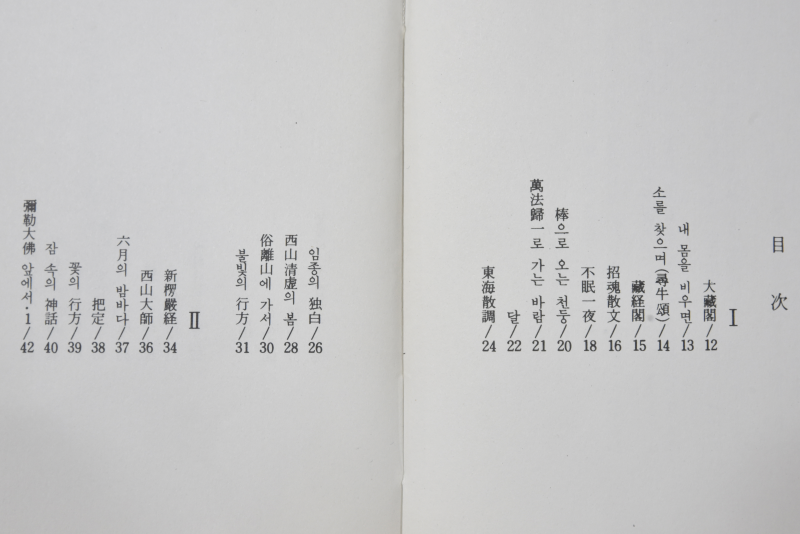 目次
I
大藏閣/12
내 몸을 비우면/13
소를 찾으며(尋牛頌)/14
藏経閣/15
招魂散文/16
不眠一夜/18
棒으로 오는 천둥/20
萬法歸一로 가는 바람/21
달/22
東海散調/24
임종의 独白/26
西山清虚의 봄/28
俗離山에 가서/30
불빛의 行方/31
II
新楞嚴経/34
西山大師/36
六月의 밤바다/37
把定/38
꽃의 行方/39
잠 속의 神話/40
彌勒大佛 앞에서·1/42